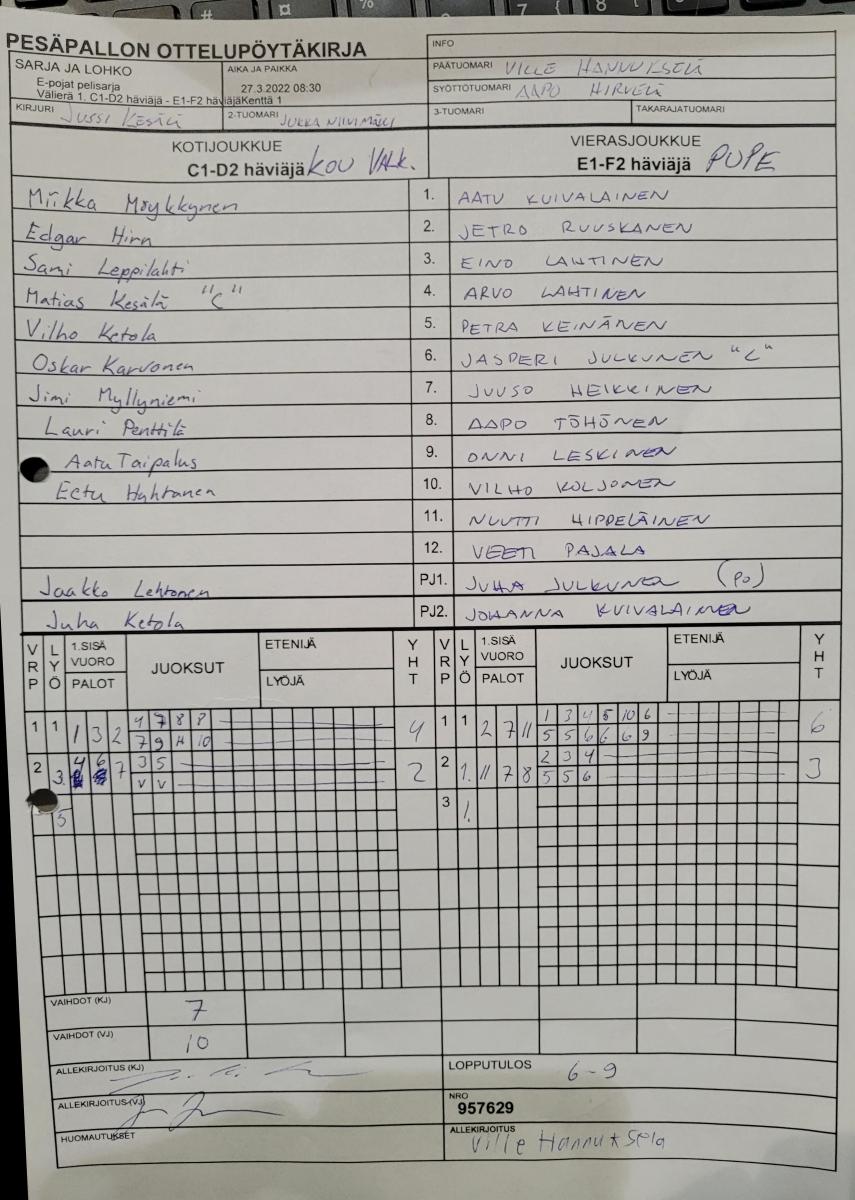 PESÄPALLON OTTELUPÖYTÄKIRJA
INFO
SARJA JA LOHKO
E-pojat pelisarja
Välierä 1. C1-D2 häviäjä - E1-F2 häviäjä
AIKA JA PAIKKA
27.3.2022 08:30
Kenttä 1
PÄÄTUOMARI VILLE HANNUKSELA
SYÖTTÖTUOMARI AAPO HIRVELÄ
KIRJURI JUSSI KESÄLÄ
2-TUOMARI JUKKA NIINIMÄKI
3-TUOMARI
TAKARAJATUOMARI
KOTIJOUKKUE
C1-D2 häviäjä KOU VALK.
VIERASJOUKKUE
E1-F2 häviäjä PUPE
Miikka Möykkynen 1. AATU KUIVALAINEN
Edgar Hirn 2. JETRO RUUSKANEN
Sami Leppilahti 3. EINO LAHTINEN
Matias Kesälä "C" 4. ARVO LAHTINEN
Vilho Ketola 5. PETRA KEINÄNEN
Oskar Karvonen 6. JASPERI JULKUNEN "C"
Jimi Myllyniemi 7. JUUSO HEIKKINEN
Lauri Penttilä 8. AAPO TÖHÖNEN
Aatu Taipalus 9. ONNI LESKINEN
Eetu Huhtanen 10. VILHO KOLJONEN
11. NUUTTI HIPPELÄINEN
12. VEETI PAJALA
Jaakko Lehtonen PJ1. JUHA JULKUNEN (PO)
Juha Ketola PJ2. JOHANNA KUIVALAINEN
VRP LYÖ 1.SISÄ VUORO PALOT JUOKSUT ETENIJÄ LYÖJÄ YHT VRP LYÖ 1.SISÄ VUORO PALOT JUOKSUT ETENIJÄ LYÖJÄ YHT
1 1 1 3 2 4 7 8 8 4 1 1 2 7 11 1 3 4 5 10 6 6
7 9 H 10 5 5 6 6 6 9
2 3. 4 6 7 3 5 2 2 1. 11 7 8 2 3 4 3
V V 5 5 6
5 3 1.
VAIHDOT (KJ) 7
VAIHDOT (VJ) 10
ALLEKIRJOITUS (KJ)
LOPPUTULOS 6-9
ALLEKIRJOITUS (VJ)
NRO
957629
HUOMAUTUKSET
ALLEKIRJOITUS
Ville Hannuksela